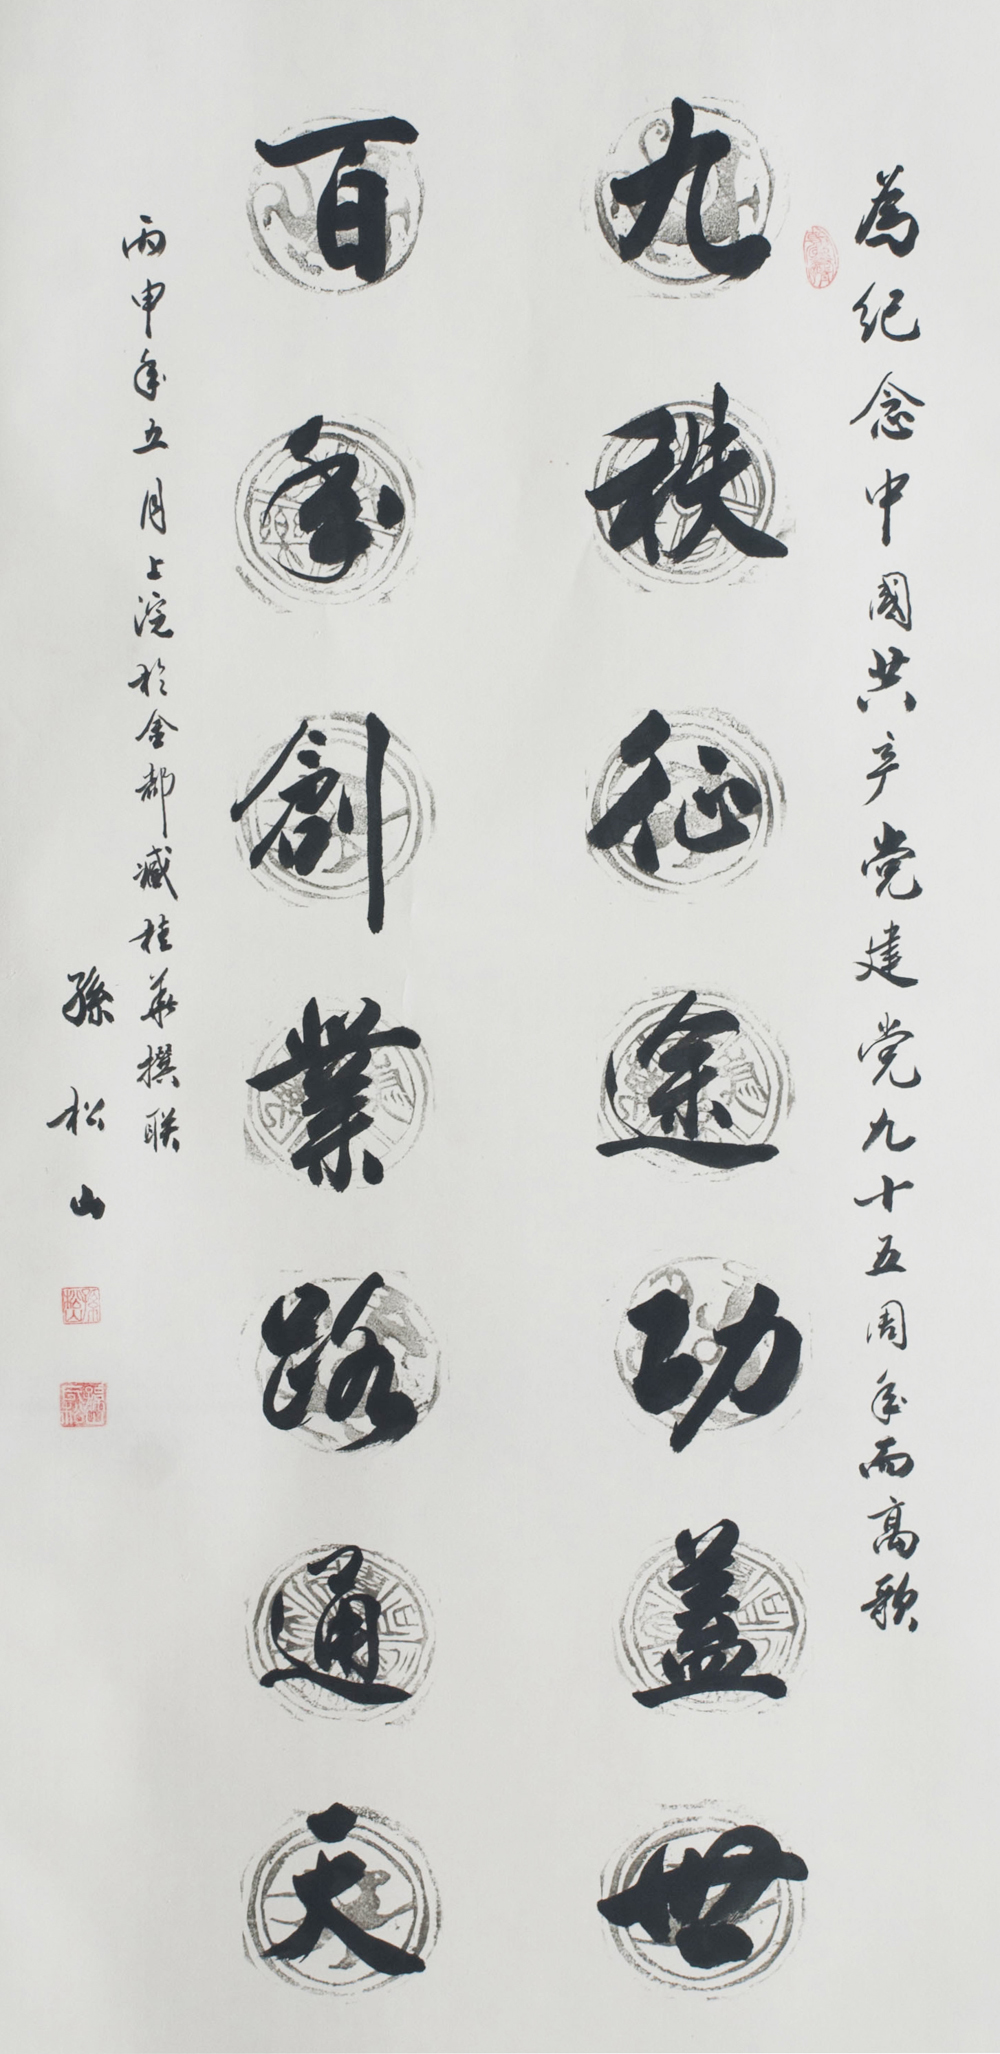 為紀念中國共产党建党九十五周年而高歌
九秩征途功盖世
百年創業路通天
丙申年五月上浣於金都臧桂華撰联
孫松山